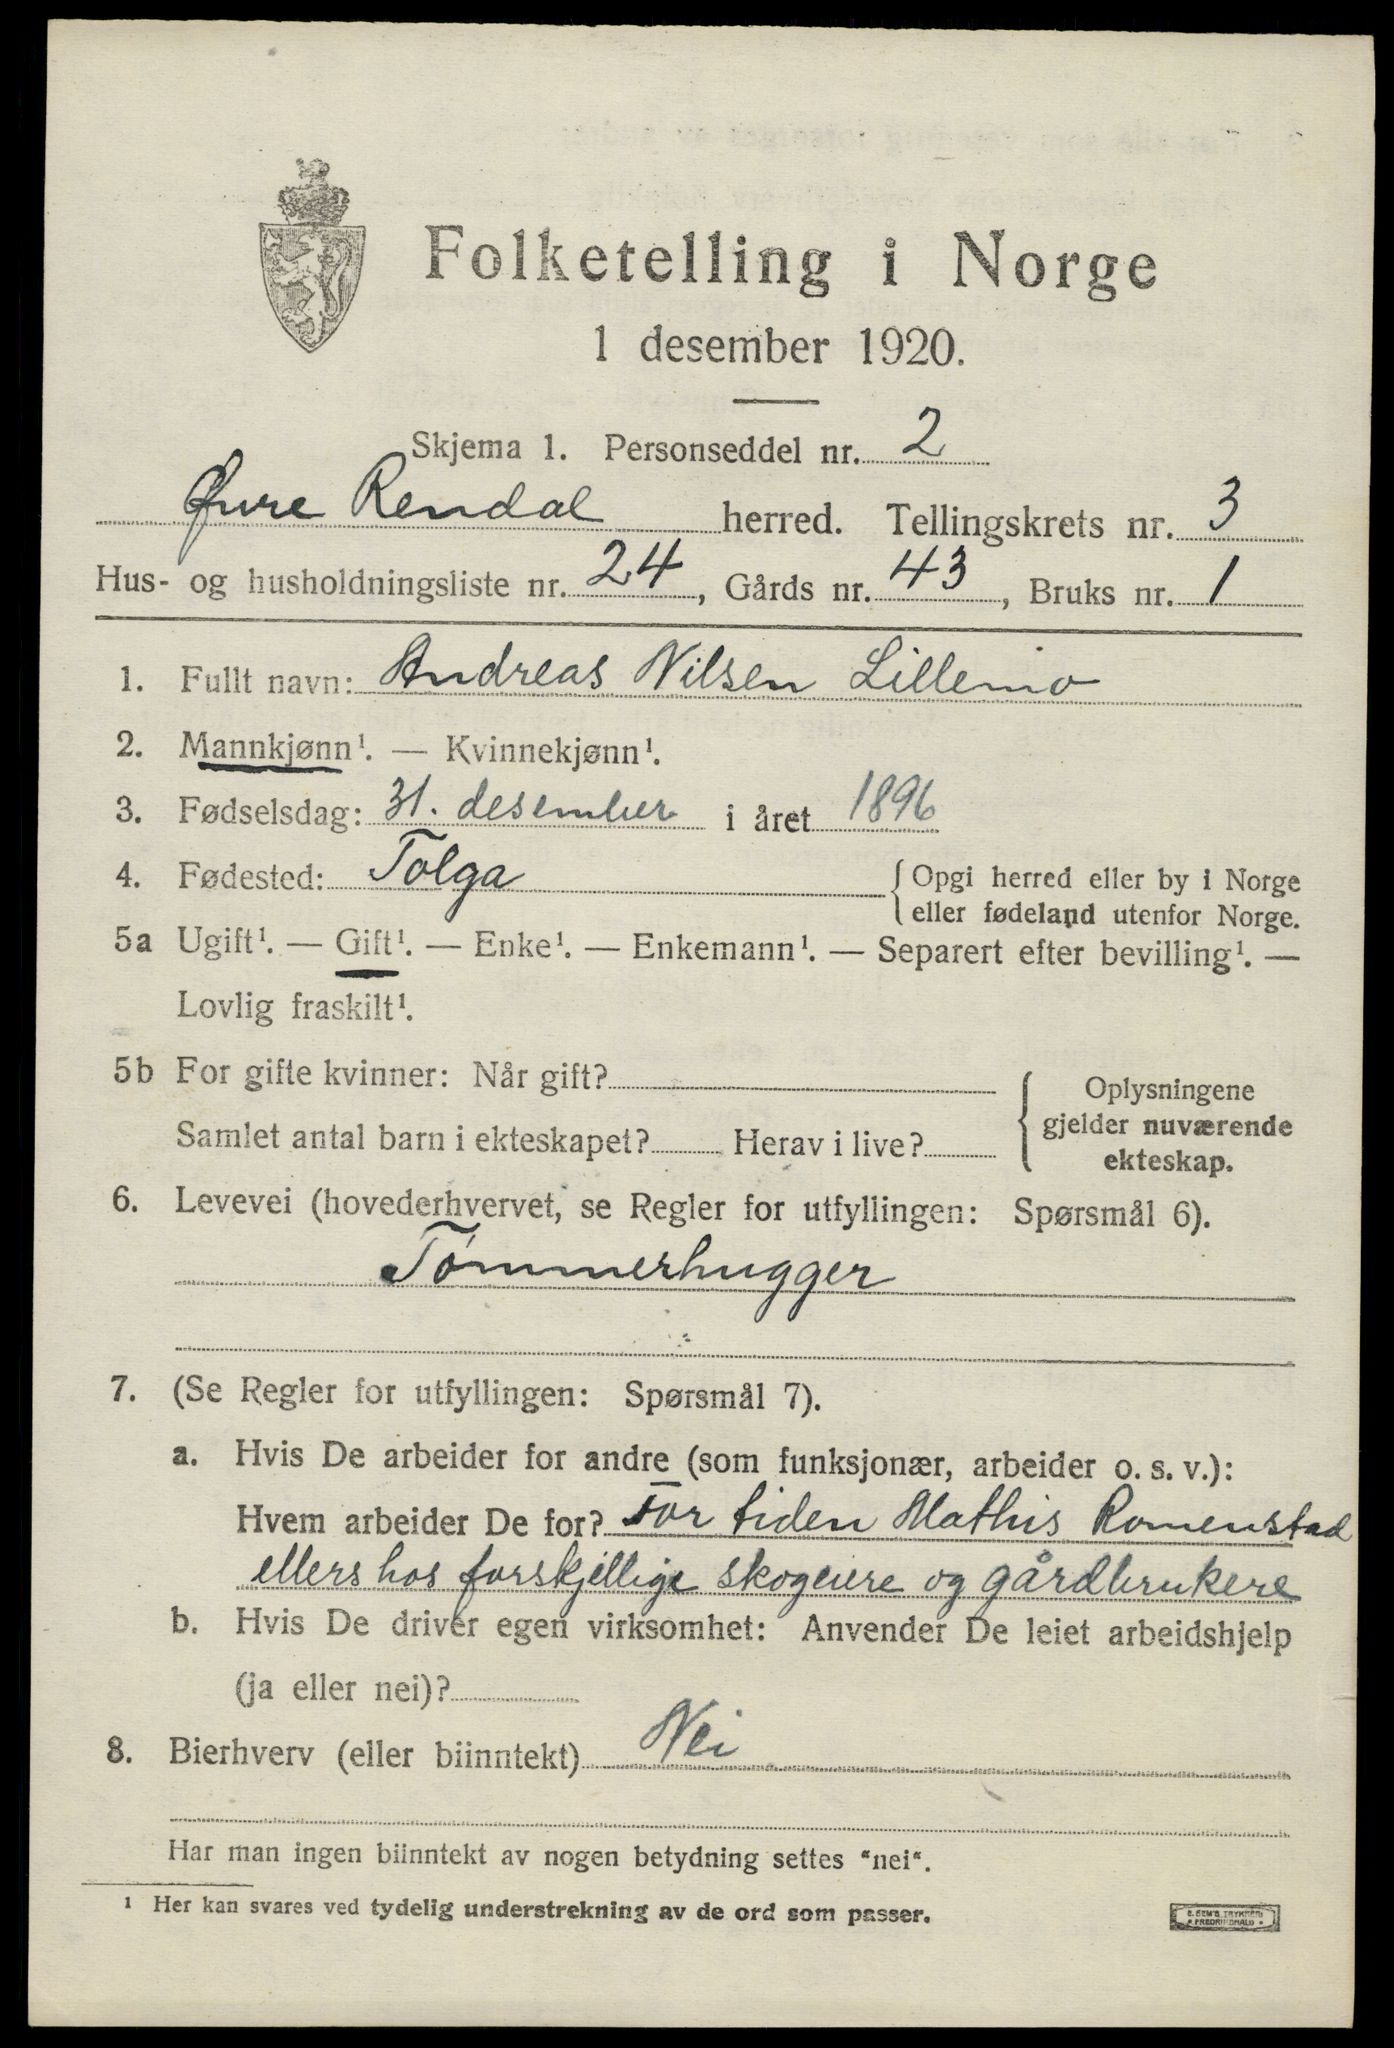 Folketelling i Norge
1 desember 1920.
Skjema 1. Personseddel nr. 2
Øvre Rendal herred. Tellingskrets nr. 3
Hus- og husholdningsliste nr. 24, Gårds nr. 43, Bruks nr. 1
1. Fullt navn: Andreas Nilsen Lillemo
2. Mannkjønn¹. — Kvinnekjønn¹.
3. Fødselsdag: 31. desember i året 1896
4. Fødested: Tolga
Opgi herred eller by i Norge
eller fødeland utenfor Norge.
5a Ugift¹. — Gift¹. — Enke¹. — Enkemann¹. — Separert efter bevilling¹. —
Lovlig fraskilt¹.
5b For gifte kvinner: Når gift?
Samlet antal barn i ekteskapet? Herav i live?
Oplysningene
gjelder nuværende
ekteskap.
6. Levevei (hovederhvervet, se Regler for utfyllingen: Spørsmål 6).
Tømmerhugger
7. (Se Regler for utfyllingen: Spørsmål 7).
a. Hvis De arbeider for andre (som funksjonær, arbeider o. s. v.):
Hvem arbeider De for? For tiden Mathis Romenstad
ellers hos forskjellige skogeiere og gårdbrukere
b. Hvis De driver egen virksomhet: Anvender De leiet arbeidshjelp
(ja eller nei)?
8. Bierhverv (eller biinntekt) Nei
Har man ingen biinntekt av nogen betydning settes "nei".
¹ Her kan svares ved tydelig understrekning av de ord som passer.
E. SEM'S TRYKKERI
FREDRIKSHALD